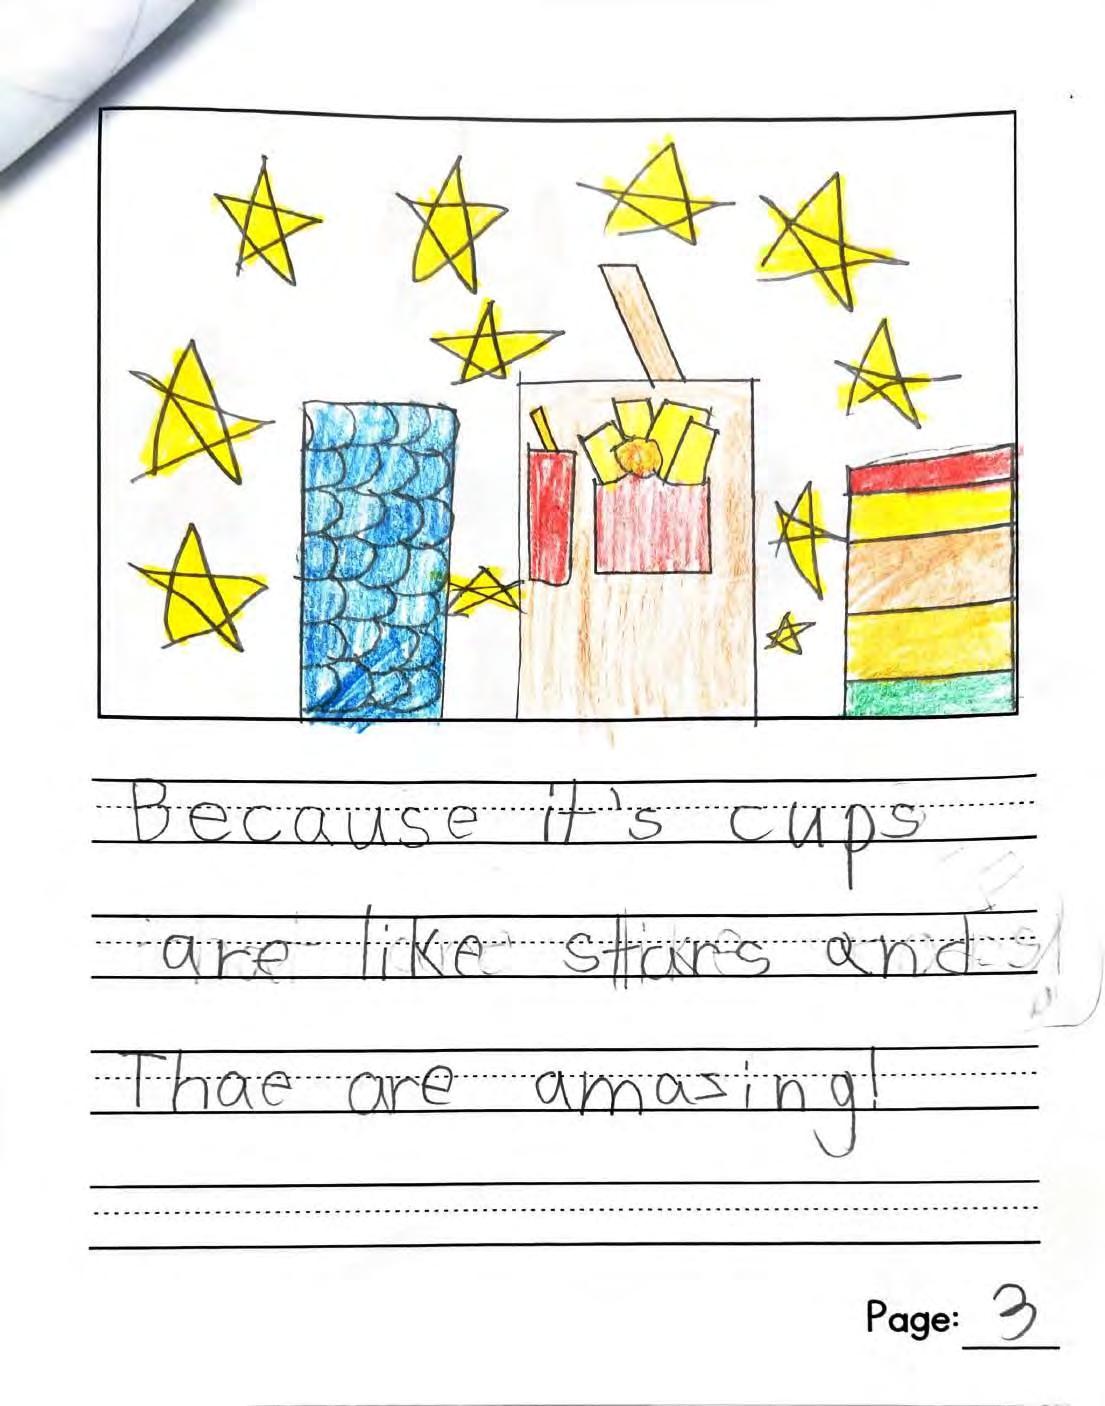 Because it's cups
are like stars and
Thae are amazing!
Page: 3